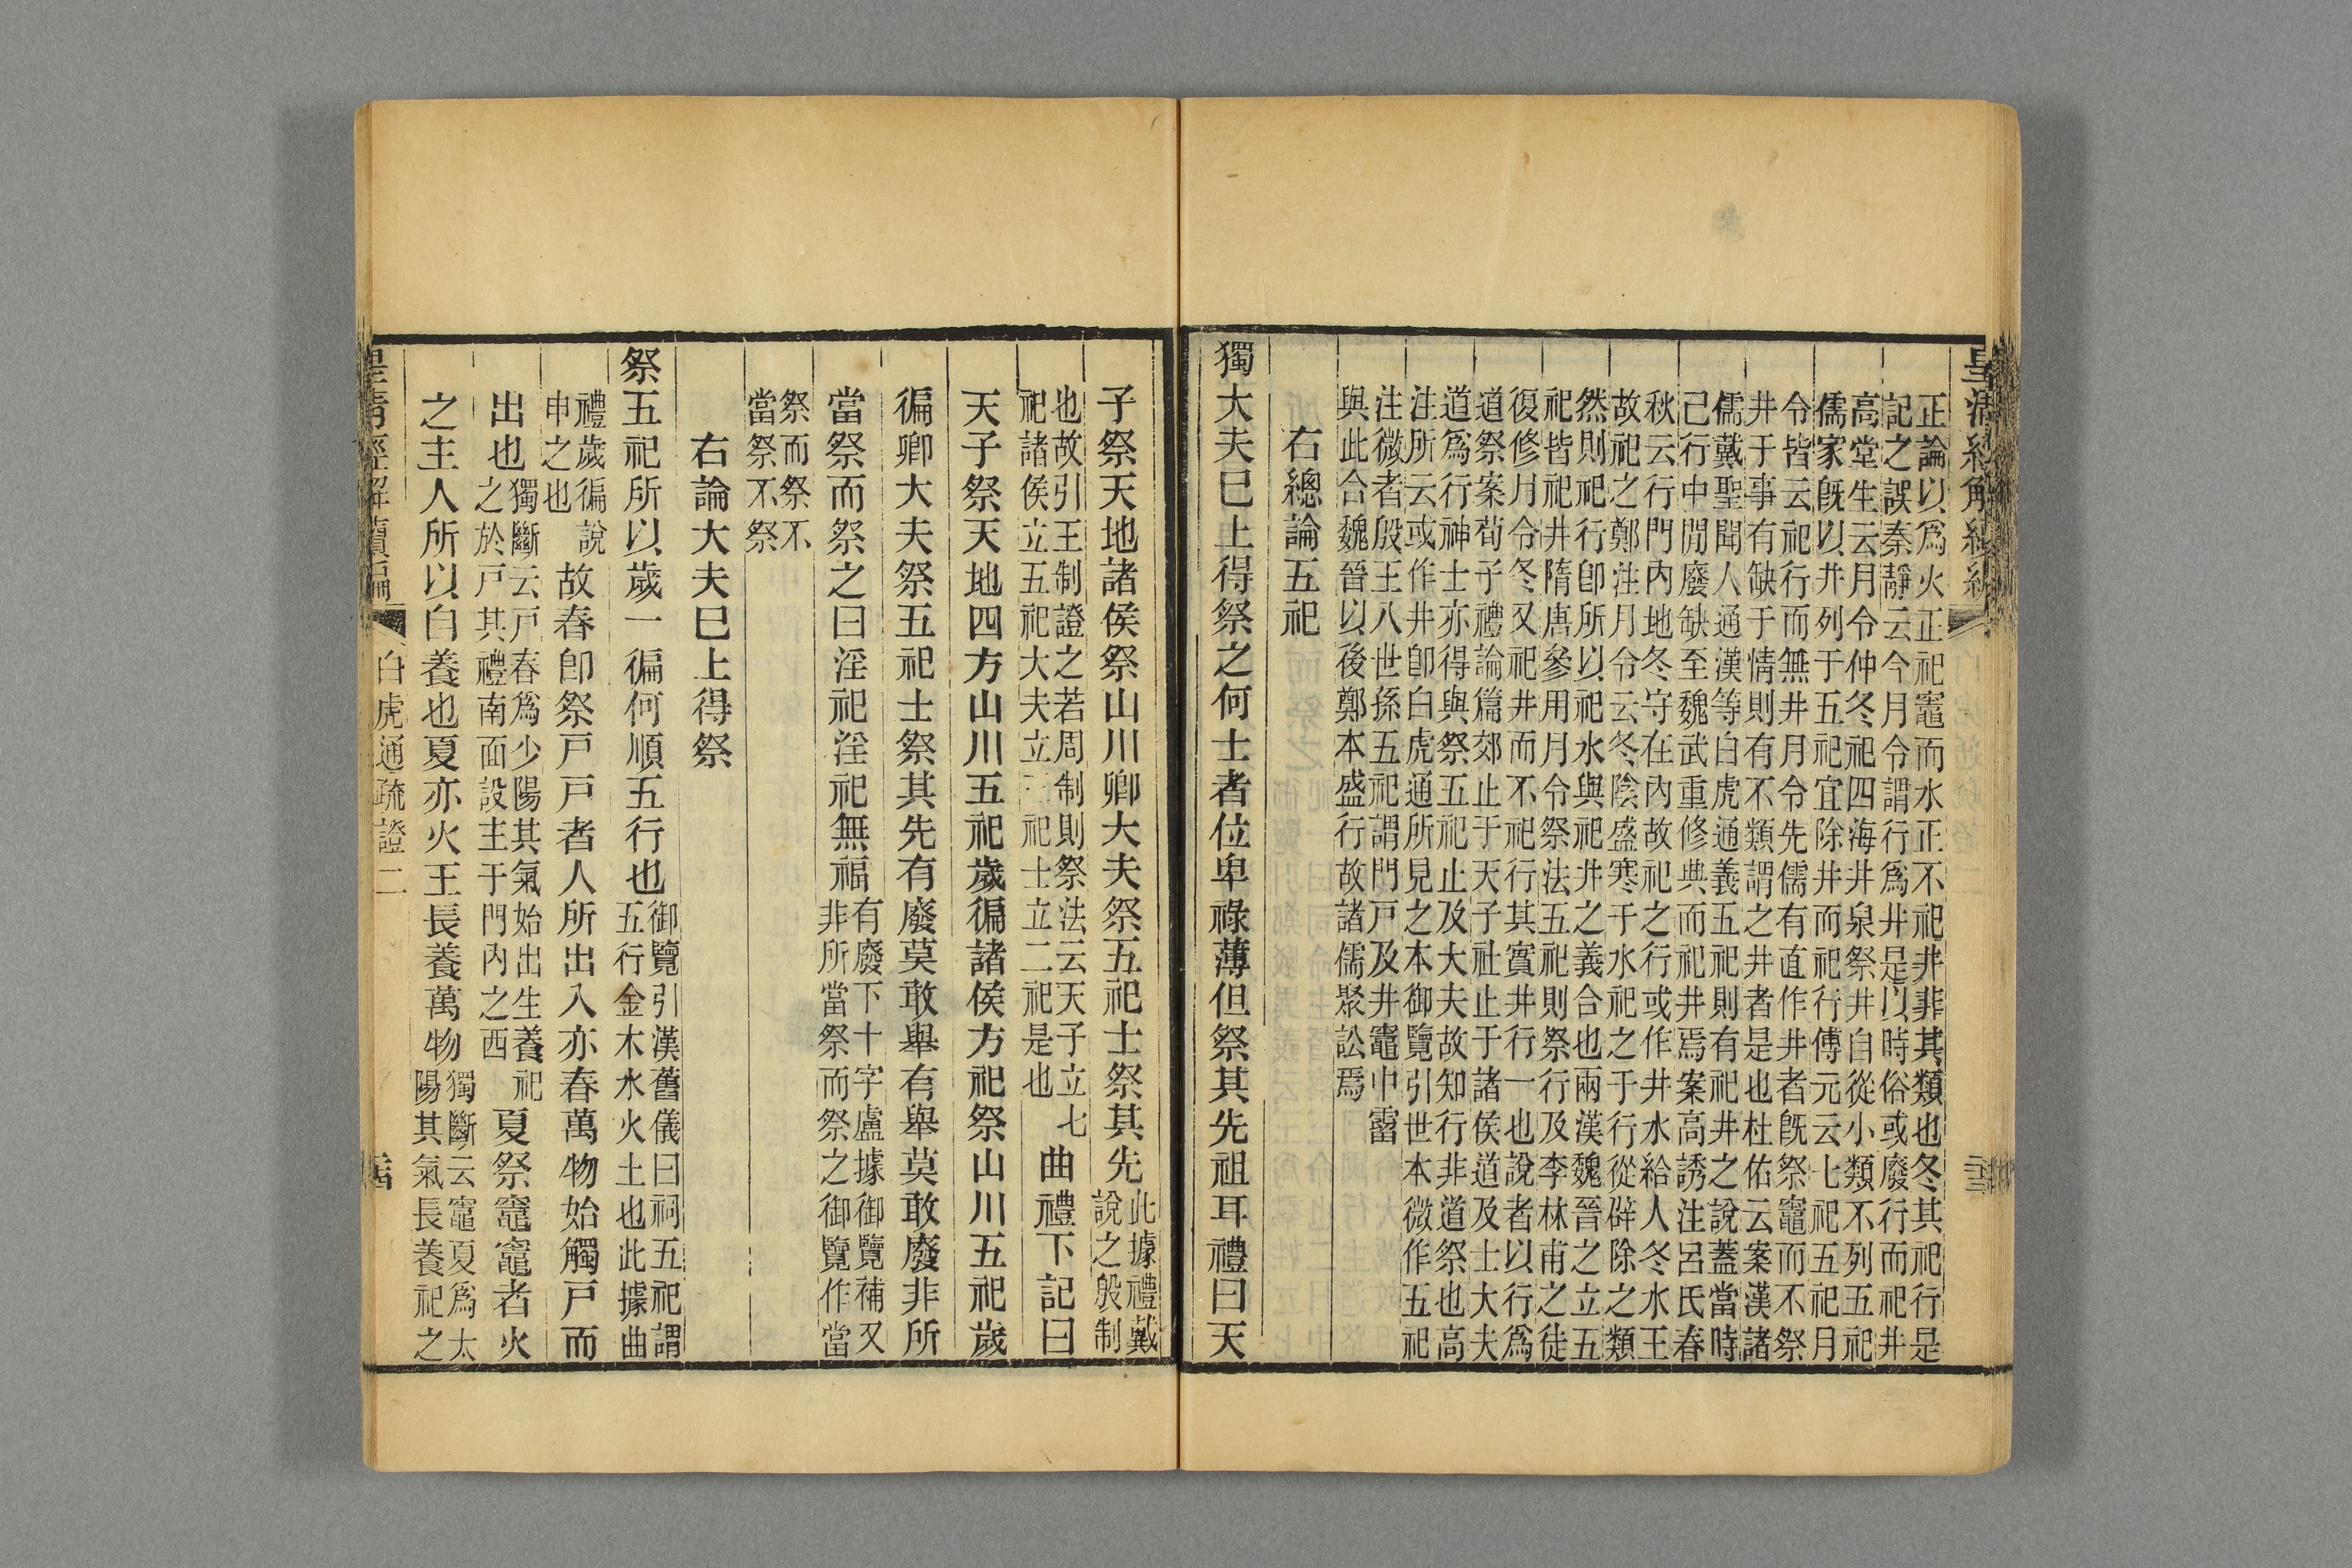 正論以爲火正祀竈而水正不祀井非其類也冬其祀行是
記之誤秦靜云今月令謂行爲井是以時俗或廢行而祀井
高堂生云月令仲冬祀四海井泉祭井自從小類不列五祀
儒家旣以井列于五祀宜除井而祀行傅元云七祀五祀月
令皆云祀行而無井月令先儒有直作井者旣祭竈而不祭
井于事有缺于情則有不類謂之井者是也杜佑云案漢諸
儒戴聖聞人通漢等白虎通義五祀則有祀井之說蓋當時
已行中閒廢缺至魏武重修典而祀井焉案高誘注呂氏春
秋云行門內地冬守在內故祀之行或作井水給人冬水王
故祀之鄭注月令云冬陰盛寒于水祀之于行從辟除之類
然則祀行卽所以祀水與祀井之義合也兩漢魏晉之立五
祀皆祀井隋唐參用月令祭法五祀則祭行及李林甫之徒
復修月令冬又祀井而不祀行其實井行一也說者以行爲
道祭案荀子禮論篇郊止于天子社止于諸侯道及士大夫
道爲行神士亦得與祭五祀止及大夫故知行非道祭也高
注所云或作井卽白虎通所見之本御覽引世本微作五祀
注微者殷王八世孫五祀謂門戶及井竈中霤
與此合魏晉以後鄭本盛行故諸儒聚訟焉
右總論五祀
獨大夫已上得祭之何士者位卑祿薄但祭其先祖耳禮曰天
子祭天地諸侯祭山川卿大夫祭五祀士祭其先此據禮戴
說之殷制
也故引王制證之若周制則祭法云天子立七
祀諸侯立五祀大夫立三祀士立二祀是也
曲禮下記曰
天子祭天地四方山川五祀歲徧諸侯方祀祭山川五祀歲
徧卿大夫祭五祀士祭其先有廢莫敢舉有舉莫敢廢非所
當祭而祭之曰淫祀淫祀無福有廢下十字盧據御覽補又
非所當祭而祭之御覽作當
祭而祭不
當祭不祭
右論大夫已上得祭
祭五祀所以歲一徧何順五行也御覽引漢舊儀曰祠五祀謂
五行金木水火土也此據曲
禮歲徧說
申之也
故春卽祭戶戶者人所出入亦春萬物始觸戶而
出也獨斷云戶春爲少陽其氣始出生養祀
之於戶其禮南面設主于門內之西
夏祭竈竈者火
之主人所以自養也夏亦火王長養萬物獨斷云竈夏爲太
陽其氣長養祀之
白虎通疏證二